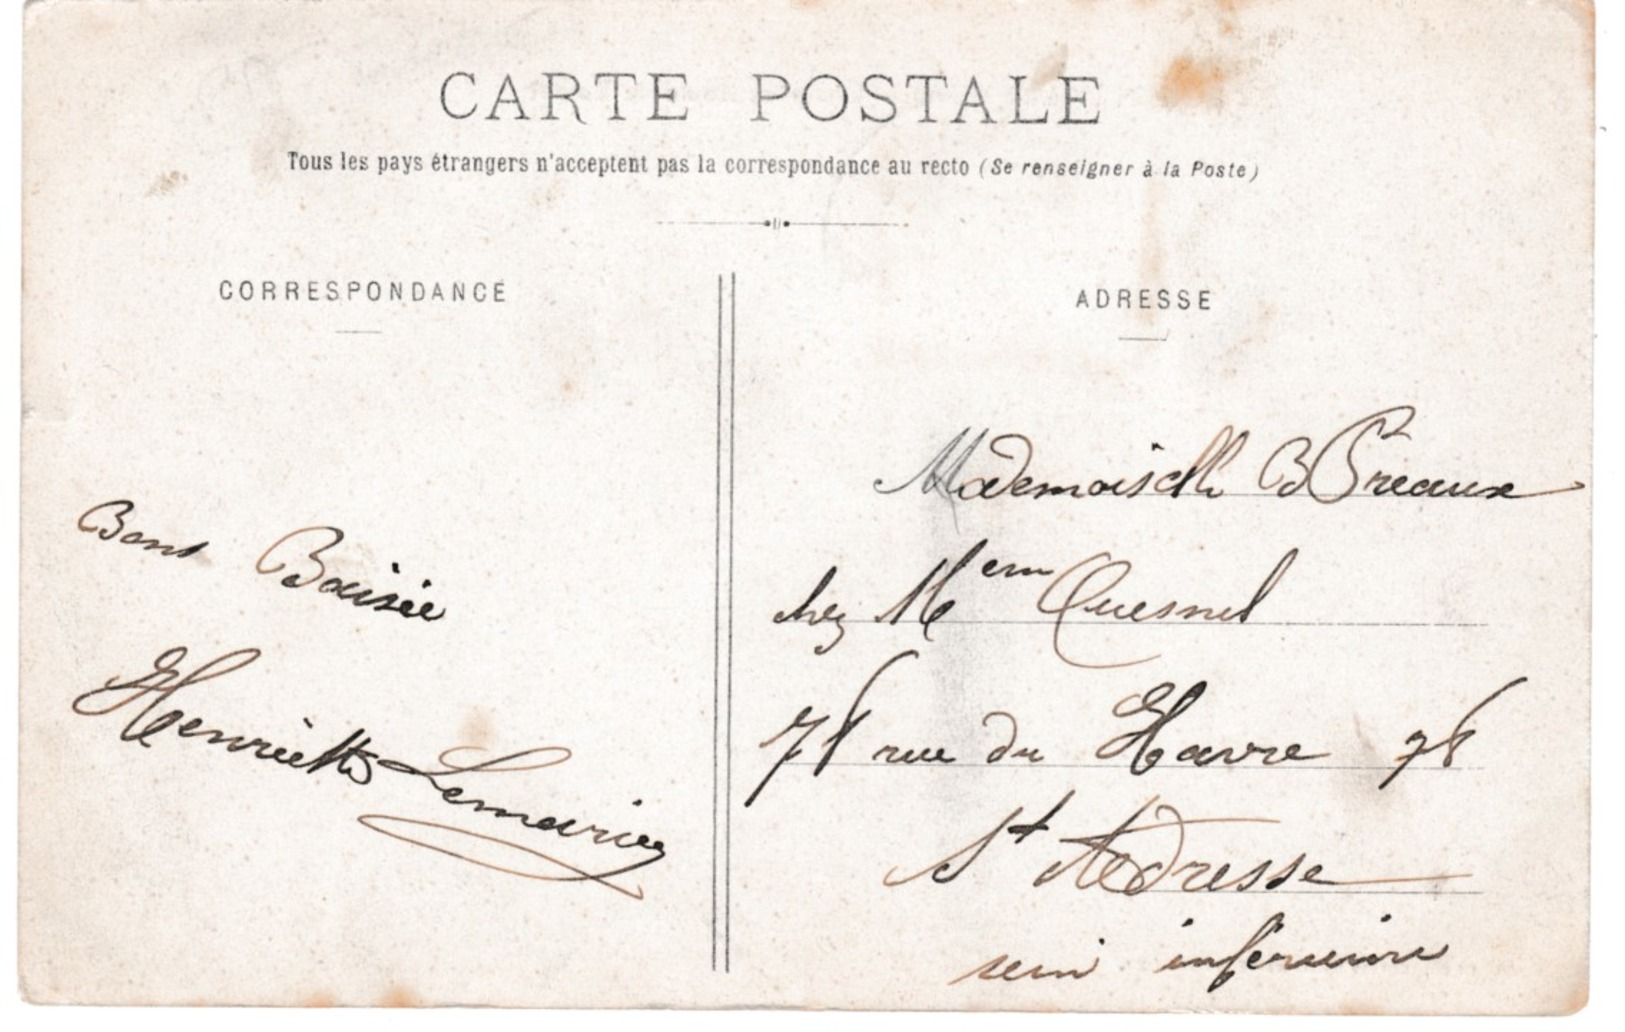 CARTE POSTALE
Tous les pays étrangers n'acceptent pas la correspondance au recto (Se renseigner à la Poste)
CORRESPONDANCE
ADRESSE
Bons Baisée
Henriette Lemariey
Mademoiselle B Preaux
chez Mem Quesnel
78 rue du Havre 78
St Adresse
sein inferieure